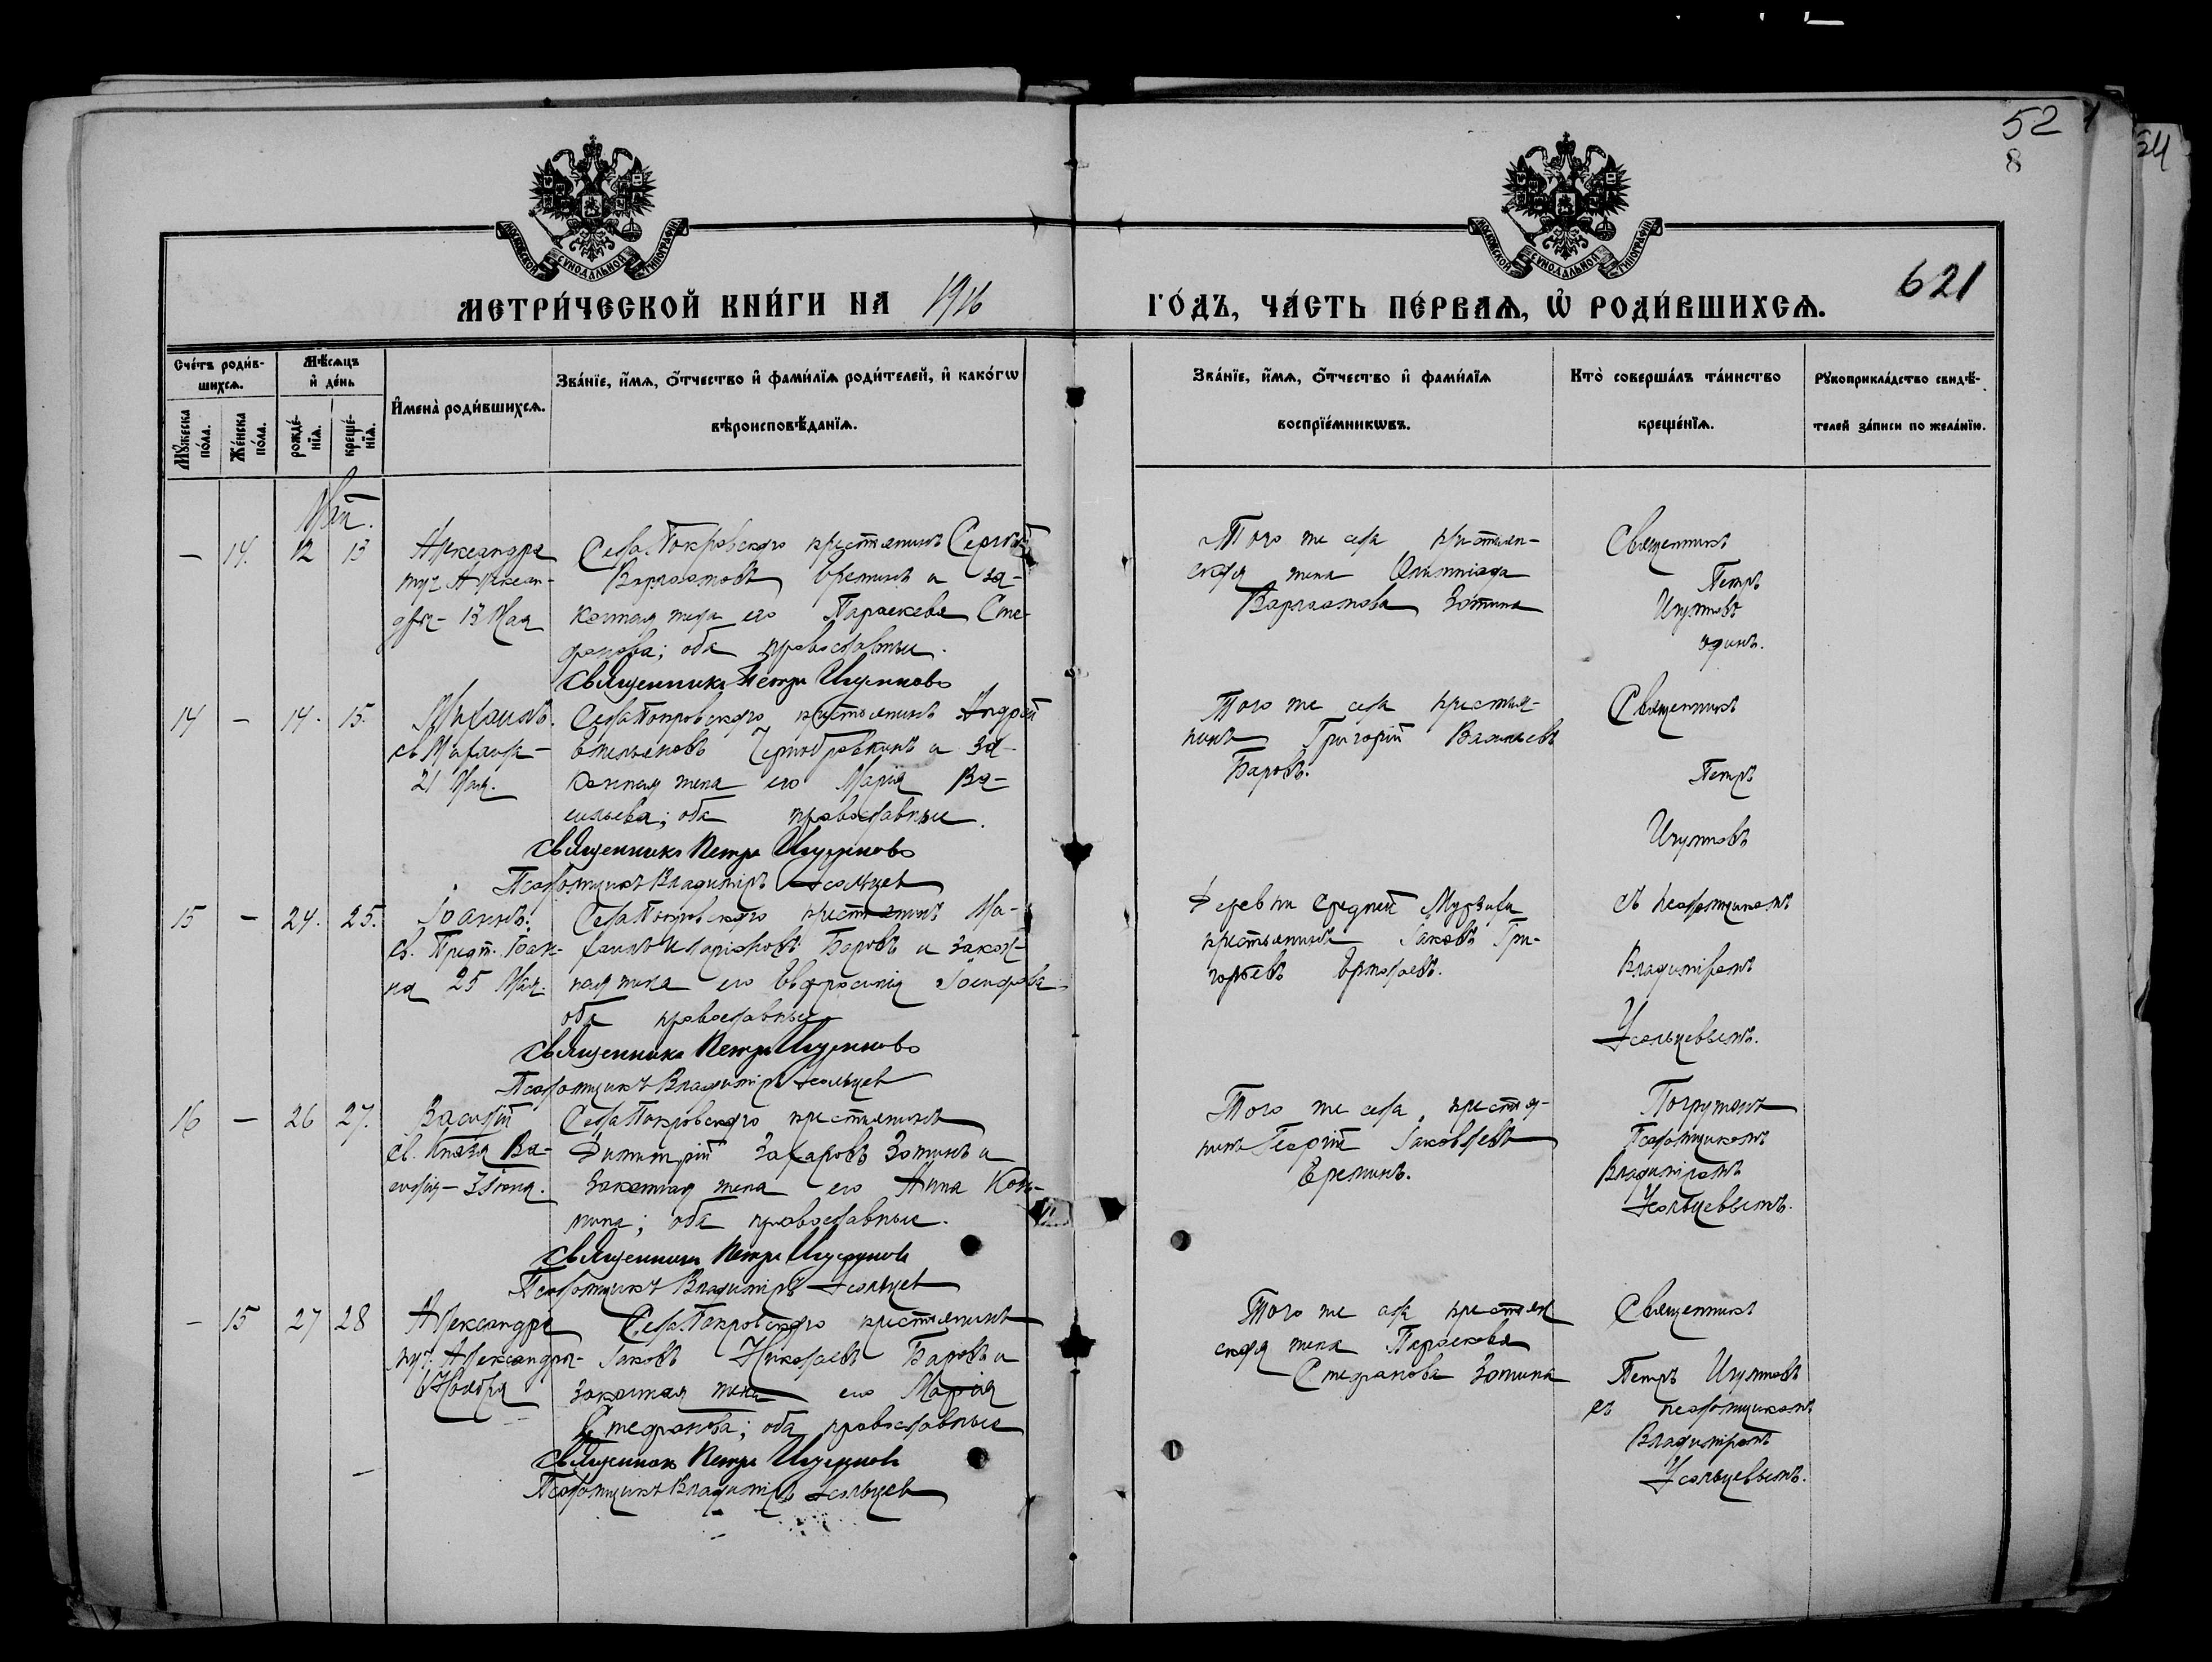 52
8
621
МОСКОВСКОЙ СѴНОДАЛЬНОЙ ТИПОГРАФІИ
МОСКОВСКОЙ СѴНОДАЛЬНОЙ ТИПОГРАФІИ
МЕТРИ́ЧЕСКОЙ КНИ́ГИ НА 1916 ГО́ДЪ, ЧА́СТЬ ПЕ́РВАѦ, Ѡ РОДИ́ВШИХСѦ.
Сче́тъ роди́в-
шихсѧ.
Мѣ́сѧцъ
и҆ де́нь
Мꙋ́жеска по́ла.
Же́нска по́ла.
рожде́-нїѧ.
креще́-нїѧ.
И҆мена̀ роди́вшихсѧ.
Зва́нїе, и҆́мѧ, ѻ҆́тчество и҆ фами́лїѧ роди́телей, и҆ како́гѡ
вѣроисповѣ́данїѧ.
Зва́нїе, и҆́мѧ, ѻ҆́тчество и҆ фами́лїѧ
воспрїе́мникѡвъ.
Кто̀ соверша́лъ та́инство
креще́нїѧ.
Рꙋкоприкла́дство свидѣ́-
телей за́писи по жела́нїю.
Май.
— 14. 12 13
Александра
муч. Алексан-
дры - 13 Мая
Села Покровскаго крестьянинъ Сергѣй
Варлаамовъ Еремин и за-
конная жена его Параскева Сте-
фанова; оба православные.
Священникъ Петръ Игумновъ
Того же села крестьян-
ская жена Олимпіада
Варлаамова Зотина
Священникъ
Петръ
Игумновъ
один.
14 — 14. 15.
Михаилъ.
св. Михаила -
21 Мая.
Села Покровскаго крестьянинъ Андрей
Емельяновъ Чернобровкинъ и за-
конная жена его Марія Ва-
сильева; оба православные.
Священникъ Петръ Игумновъ
Псаломщикъ Владиміръ Усольцев
Того же села крестья-
нинъ Григорій Васильевъ
Баровъ.
Священникъ
Петръ
Игумновъ
15 — 24. 25.
Іоаннъ.
св. Предт. Іоан-
на 25 Мая.
Села Покровскаго крестьянинъ Ма-
Иларіоновъ Баровъ и закон-
ная жена его Евфросинія Іосифова
оба православные
Священникъ Петръ Игумновъ
Псаломщикъ Владиміръ Усольцев
Деревни Средней
крестьянинъ Іаковъ Гри-
горьевъ Ермолаевъ.
съ псаломщикомъ
Владиміромъ
Усольцевымъ.
16 — 26 27.
Василій
св. Князя Ва-
силія - 3 Іюня.
Села Покровскаго крестьянинъ
Димитрій Захаровъ Зотинъ и
законная жена его Анна
оба православные.
Священникъ Петръ Игумновъ
Псаломщикъ Владиміръ Усольцев
Того же села, крестья-
нинъ Георгій Іаковлевъ
Ереминъ.
Погруженъ
Псаломщикомъ
Владиміромъ
Усольцевымъ.
— 15 27 28
Александра
муч. Александры -
6 Ноября
Села Покровскаго крестьянинъ
Іаковъ Николаевъ Баровъ и
законная жена его Марія
Стефанова; оба православные
Священникъ Петръ Игумновъ
Псаломщикъ Владиміръ Усольцев
Того же села крестьян
ская жена Параскева
Стефанова Зотина
Священникъ
Петръ Игумновъ
съ псаломщикомъ
Владиміромъ
Усольцевымъ.